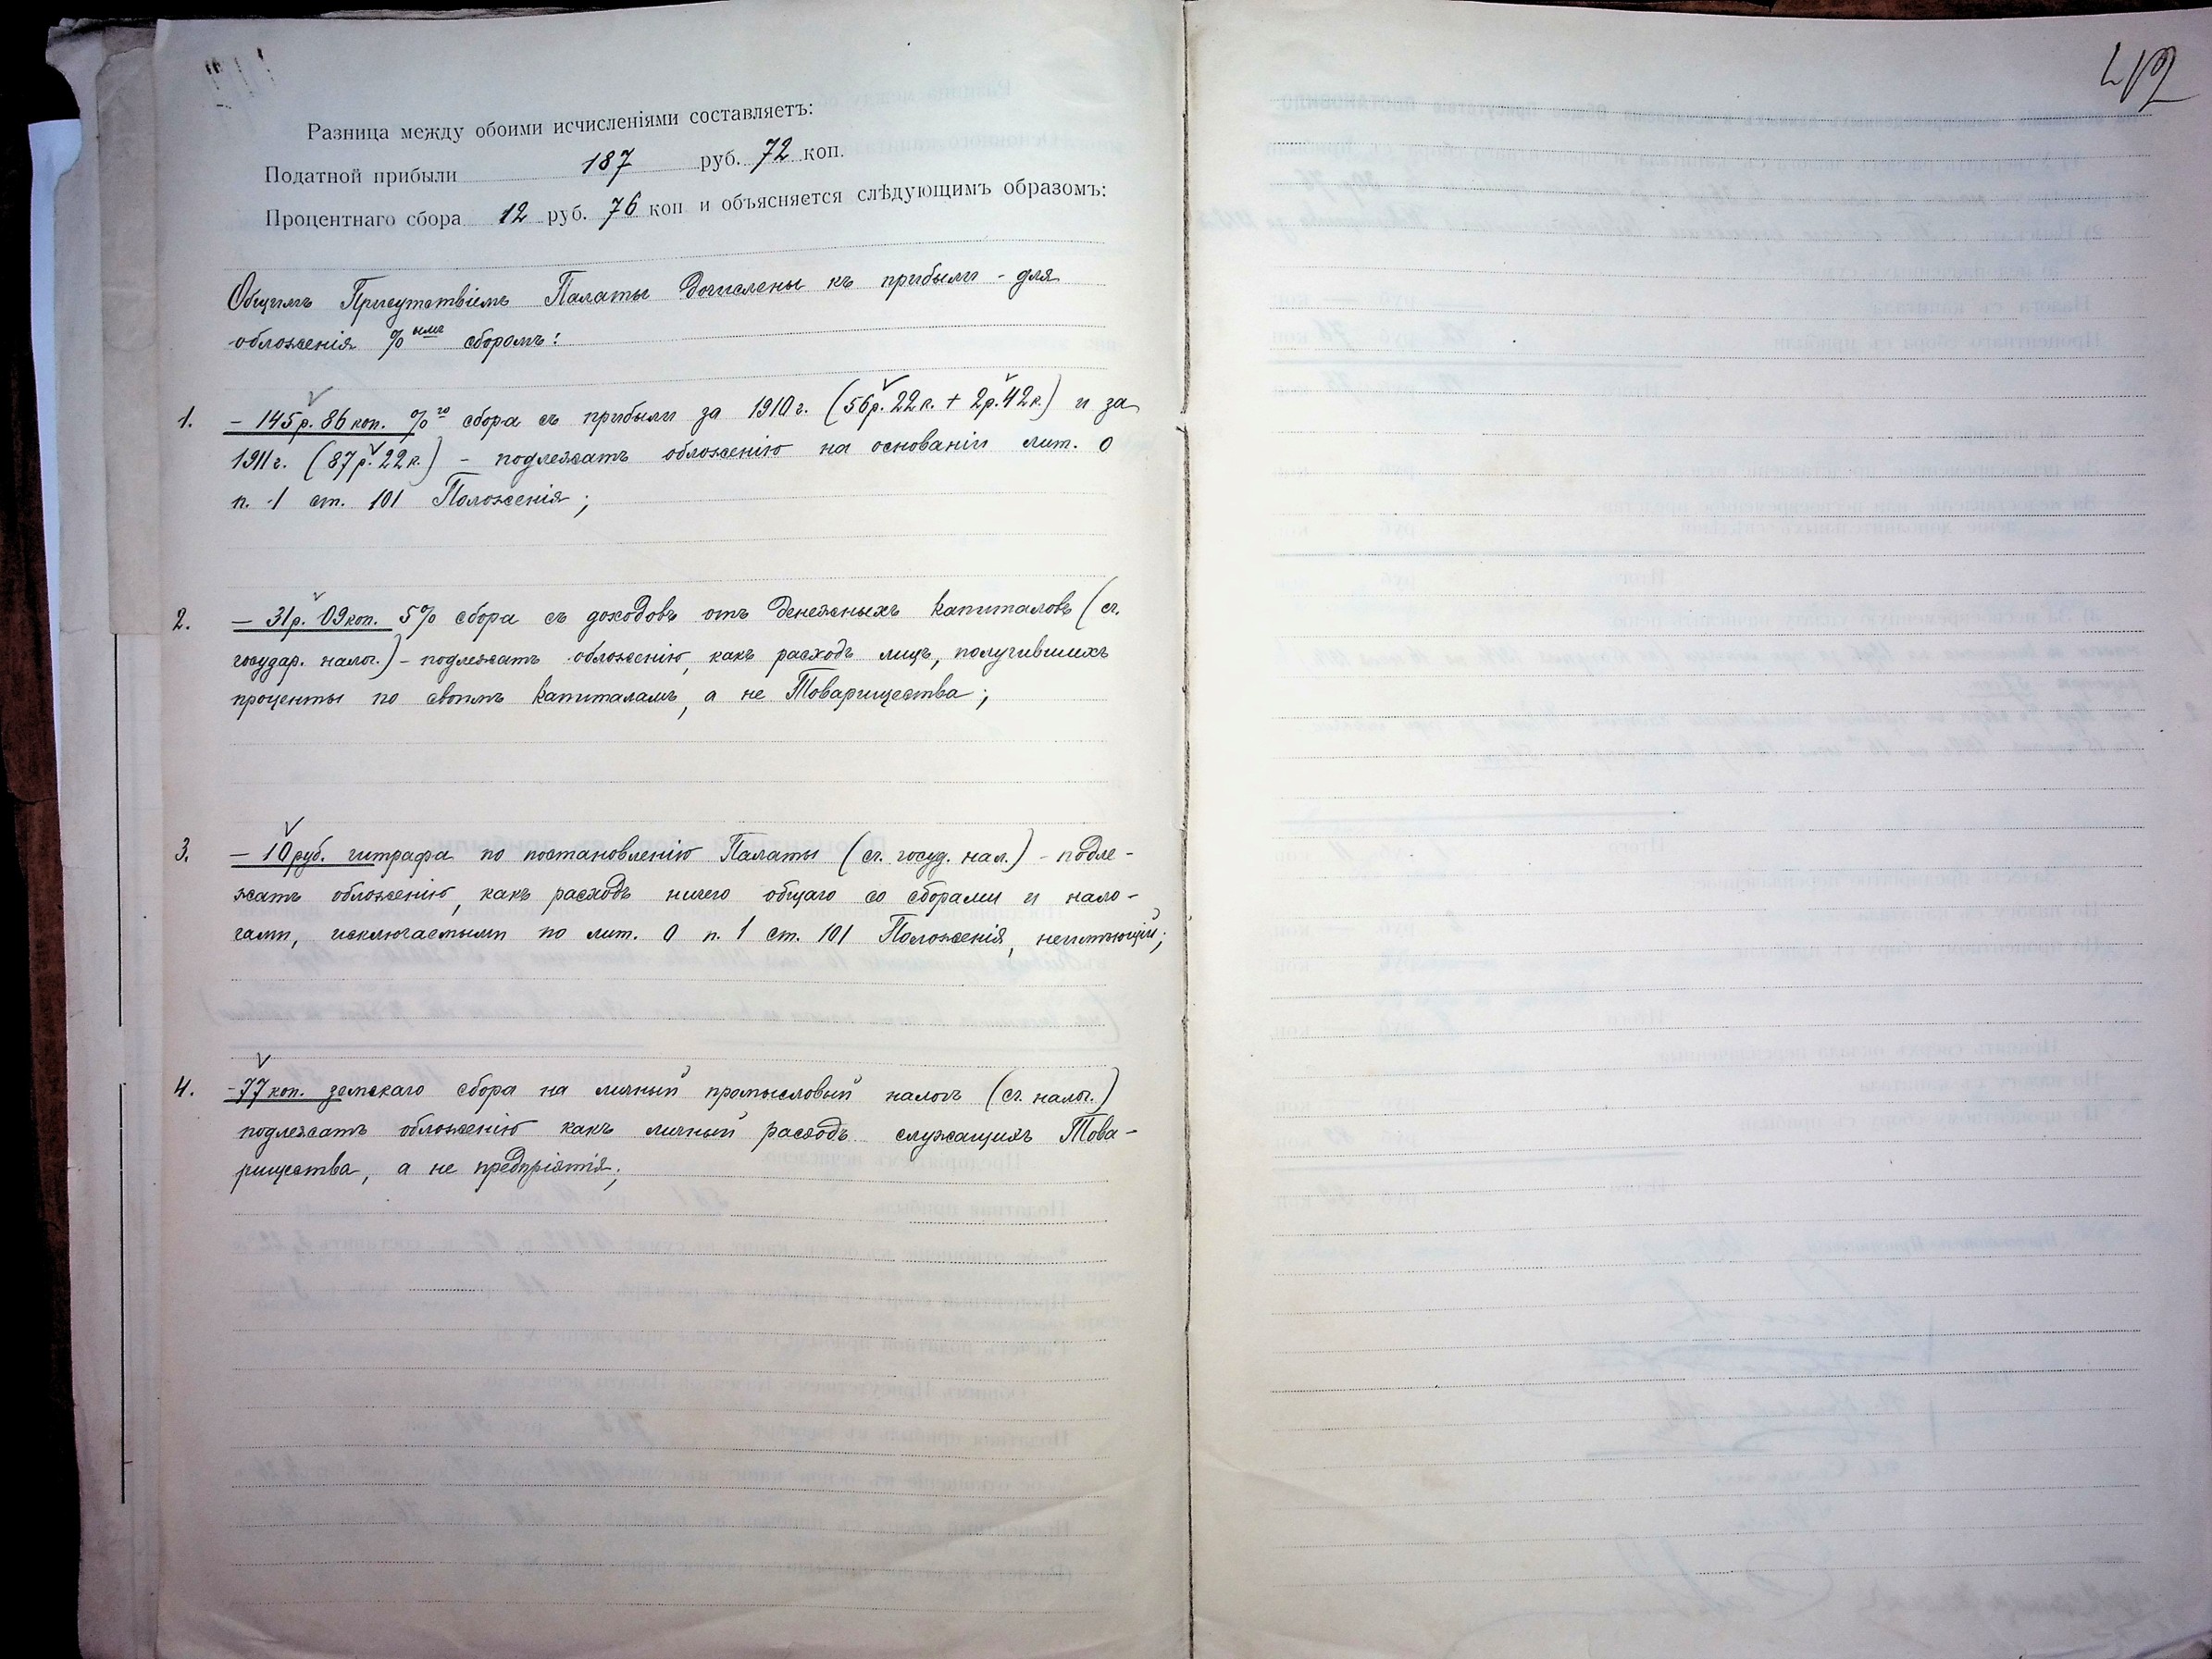 Разница между обоими исчисленіями составляетъ:
Податной прибыли 187 руб. 72 коп.
Процентнаго сбора 12 руб. 76 коп и объясняется слѣдующимъ образомъ:
Общимъ Присутствіемъ Палаты дочислены къ прибыли - для
обложенія %ымъ сборомъ:
1. - 145р. 86 коп. %го сбора съ прибыли за 1910 г. (56р. 22к. + 2р. 42к.) и за
1911 г. (87р. 22к.) - подлежатъ обложенію на основаніи лит. О
п. 1 ст. 101 Положенія;
2. - 31р. 09 коп. 5% сбора съ доходовъ отъ денежныхъ капиталовъ (сч.
государ. налог.) - подлежатъ обложенію, какъ расходъ лицъ, получившихъ
проценты по своимъ капиталамъ, а не Товарищества;
3. - 10 руб. штрафа по постановленію Палаты (сч. госуд. нал.) - подле-
жатъ обложенію, какъ расходъ ничего общаго со сборами и нало-
гами, исключаемыми по лит. О п. 1 ст. 101 Положенія, неимѣющій;
4. - 77 коп. земскаго сбора на личный промысловый налогъ (сч. налог.)
подлежатъ обложенію какъ личный расходъ служащихъ Това-
рищества, а не предпріятія;